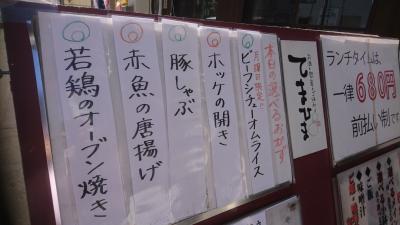 本日の選べるおかず
月曜日限定!!
ビーフシチューオムライス
ホッケの開き
豚しゃぶ
赤魚の唐揚げ
若鶏のオーブン焼き
てまひま
ランチタイムは、
一律680円
前払い制です